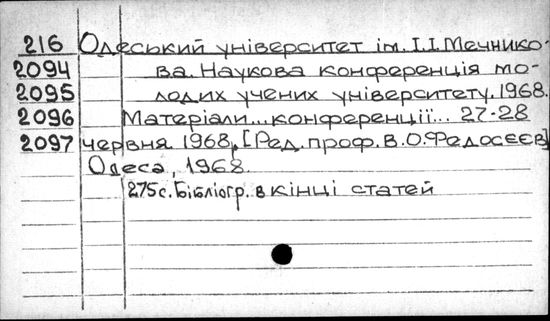 216 Одеський університет ім. І.І. Мечнико-
2094 ва. Наукова конференція мо-
2095 лодих учених університету. 1968.
2096 Матеріали... конференції... 27-28
2097 червня 1968. [Ред. проф. В.О. Федосєєв]
Одеса, 1968.
275 с. Бібліогр. в кінці статей